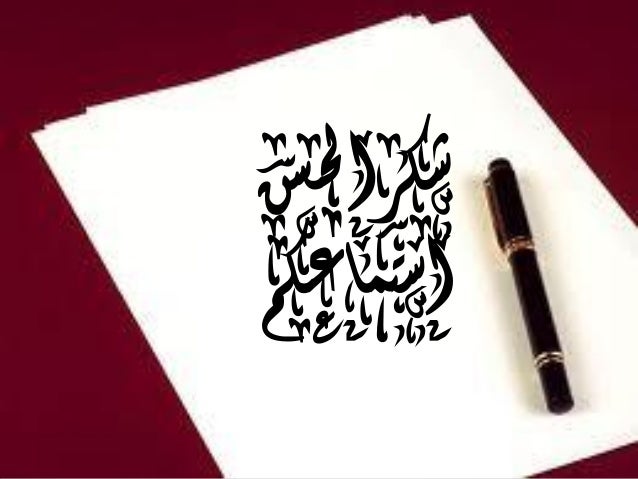 شكرا لحسن
استماعكم